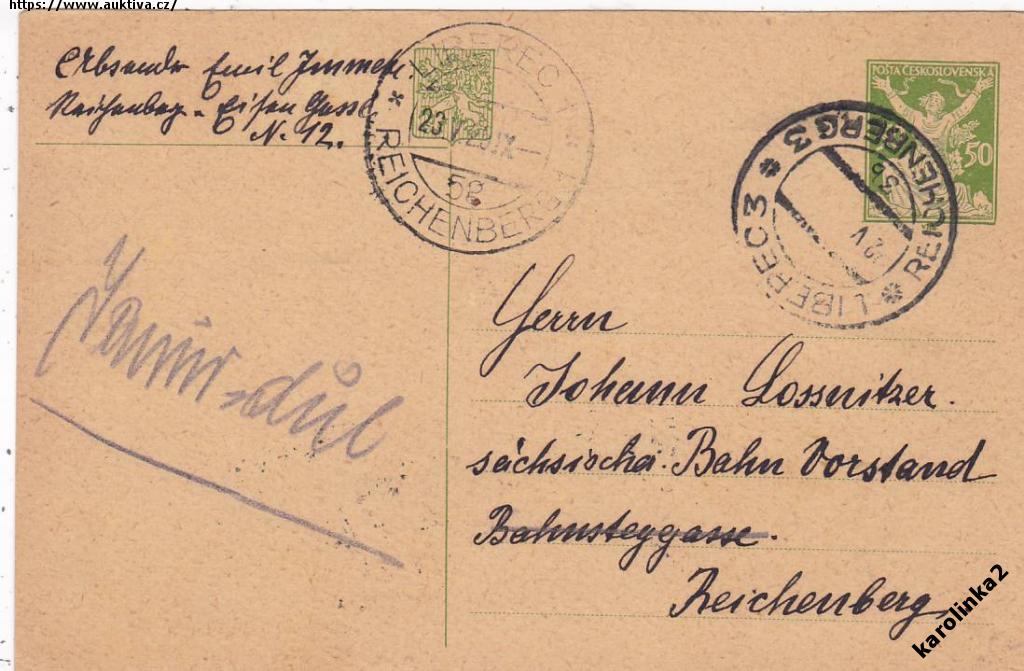 https://www.auktiva.cz/
Absender Emil
Reichenberg - Eisen Gasse
N. 12.
LIBEREC 1
23 V 23 IX
5e
* REICHENBERG 1
POŠTA ČESKOSLOVENSKÁ
50
* LIBEREC 3 * REICHENBERG 3
Herrn
Johann Lossnitzer.
sächsischer Bahn Vorstand
Bahnsteggasse.
Reichenberg
karolinka2